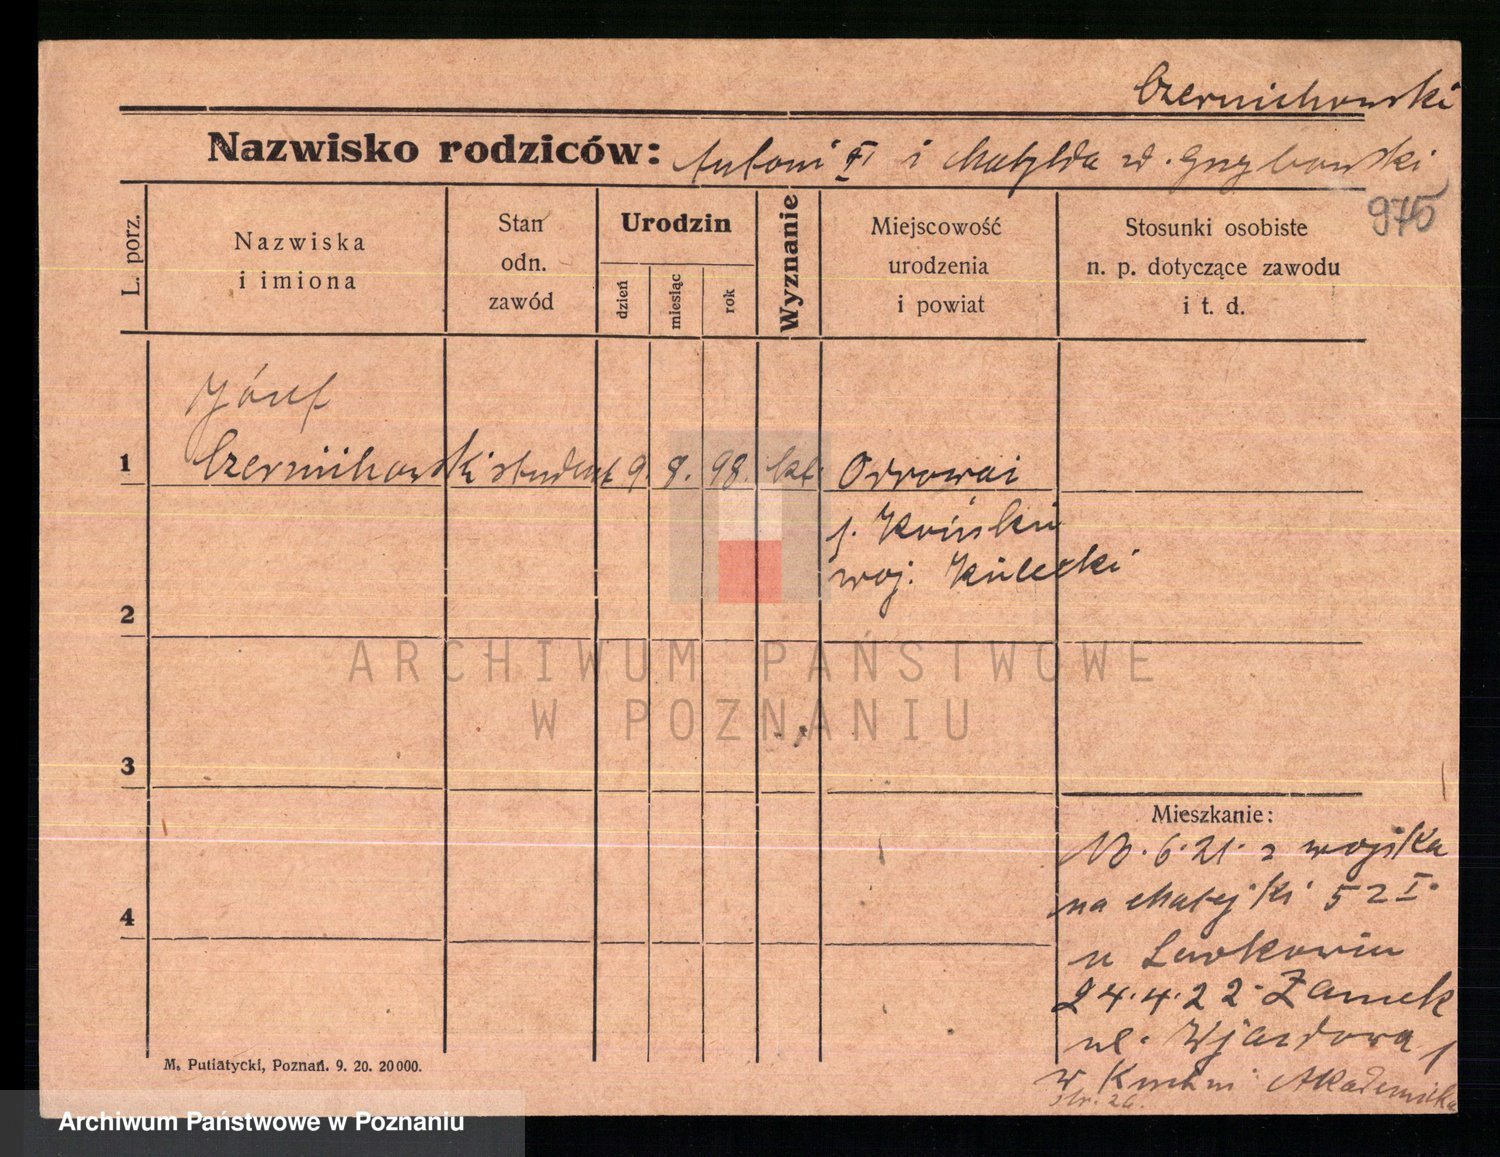 Czernichowski
Nazwisko rodziców: Antoni i Matylda z d. Grzybowski
975
L. porz.
Nazwiska
i imiona
Stan
odn.
zawód
Urodzin
dzień
miesiąc
rok
Wyznanie
Miejscowość
urodzenia
i powiat
Stosunki osobiste
n. p. dotyczące zawodu
i t. d.
Józef
1 Czernichowski student 9. 8. 98. kat. Odrowai
p. Koński
woj. Kielecki
2
ARCHIWUM PAŃSTWOWE
W POZNANIU
3
Mieszkanie:
13.6.21. z wojska
na Matejki 52 I.
4
u
24.4.22. Zamek
ul. Wjazdowa
w Kuchni Akademicka
str. 26.
M. Putiatycki, Poznań. 9. 20. 20000.
Archiwum Państwowe w Poznaniu